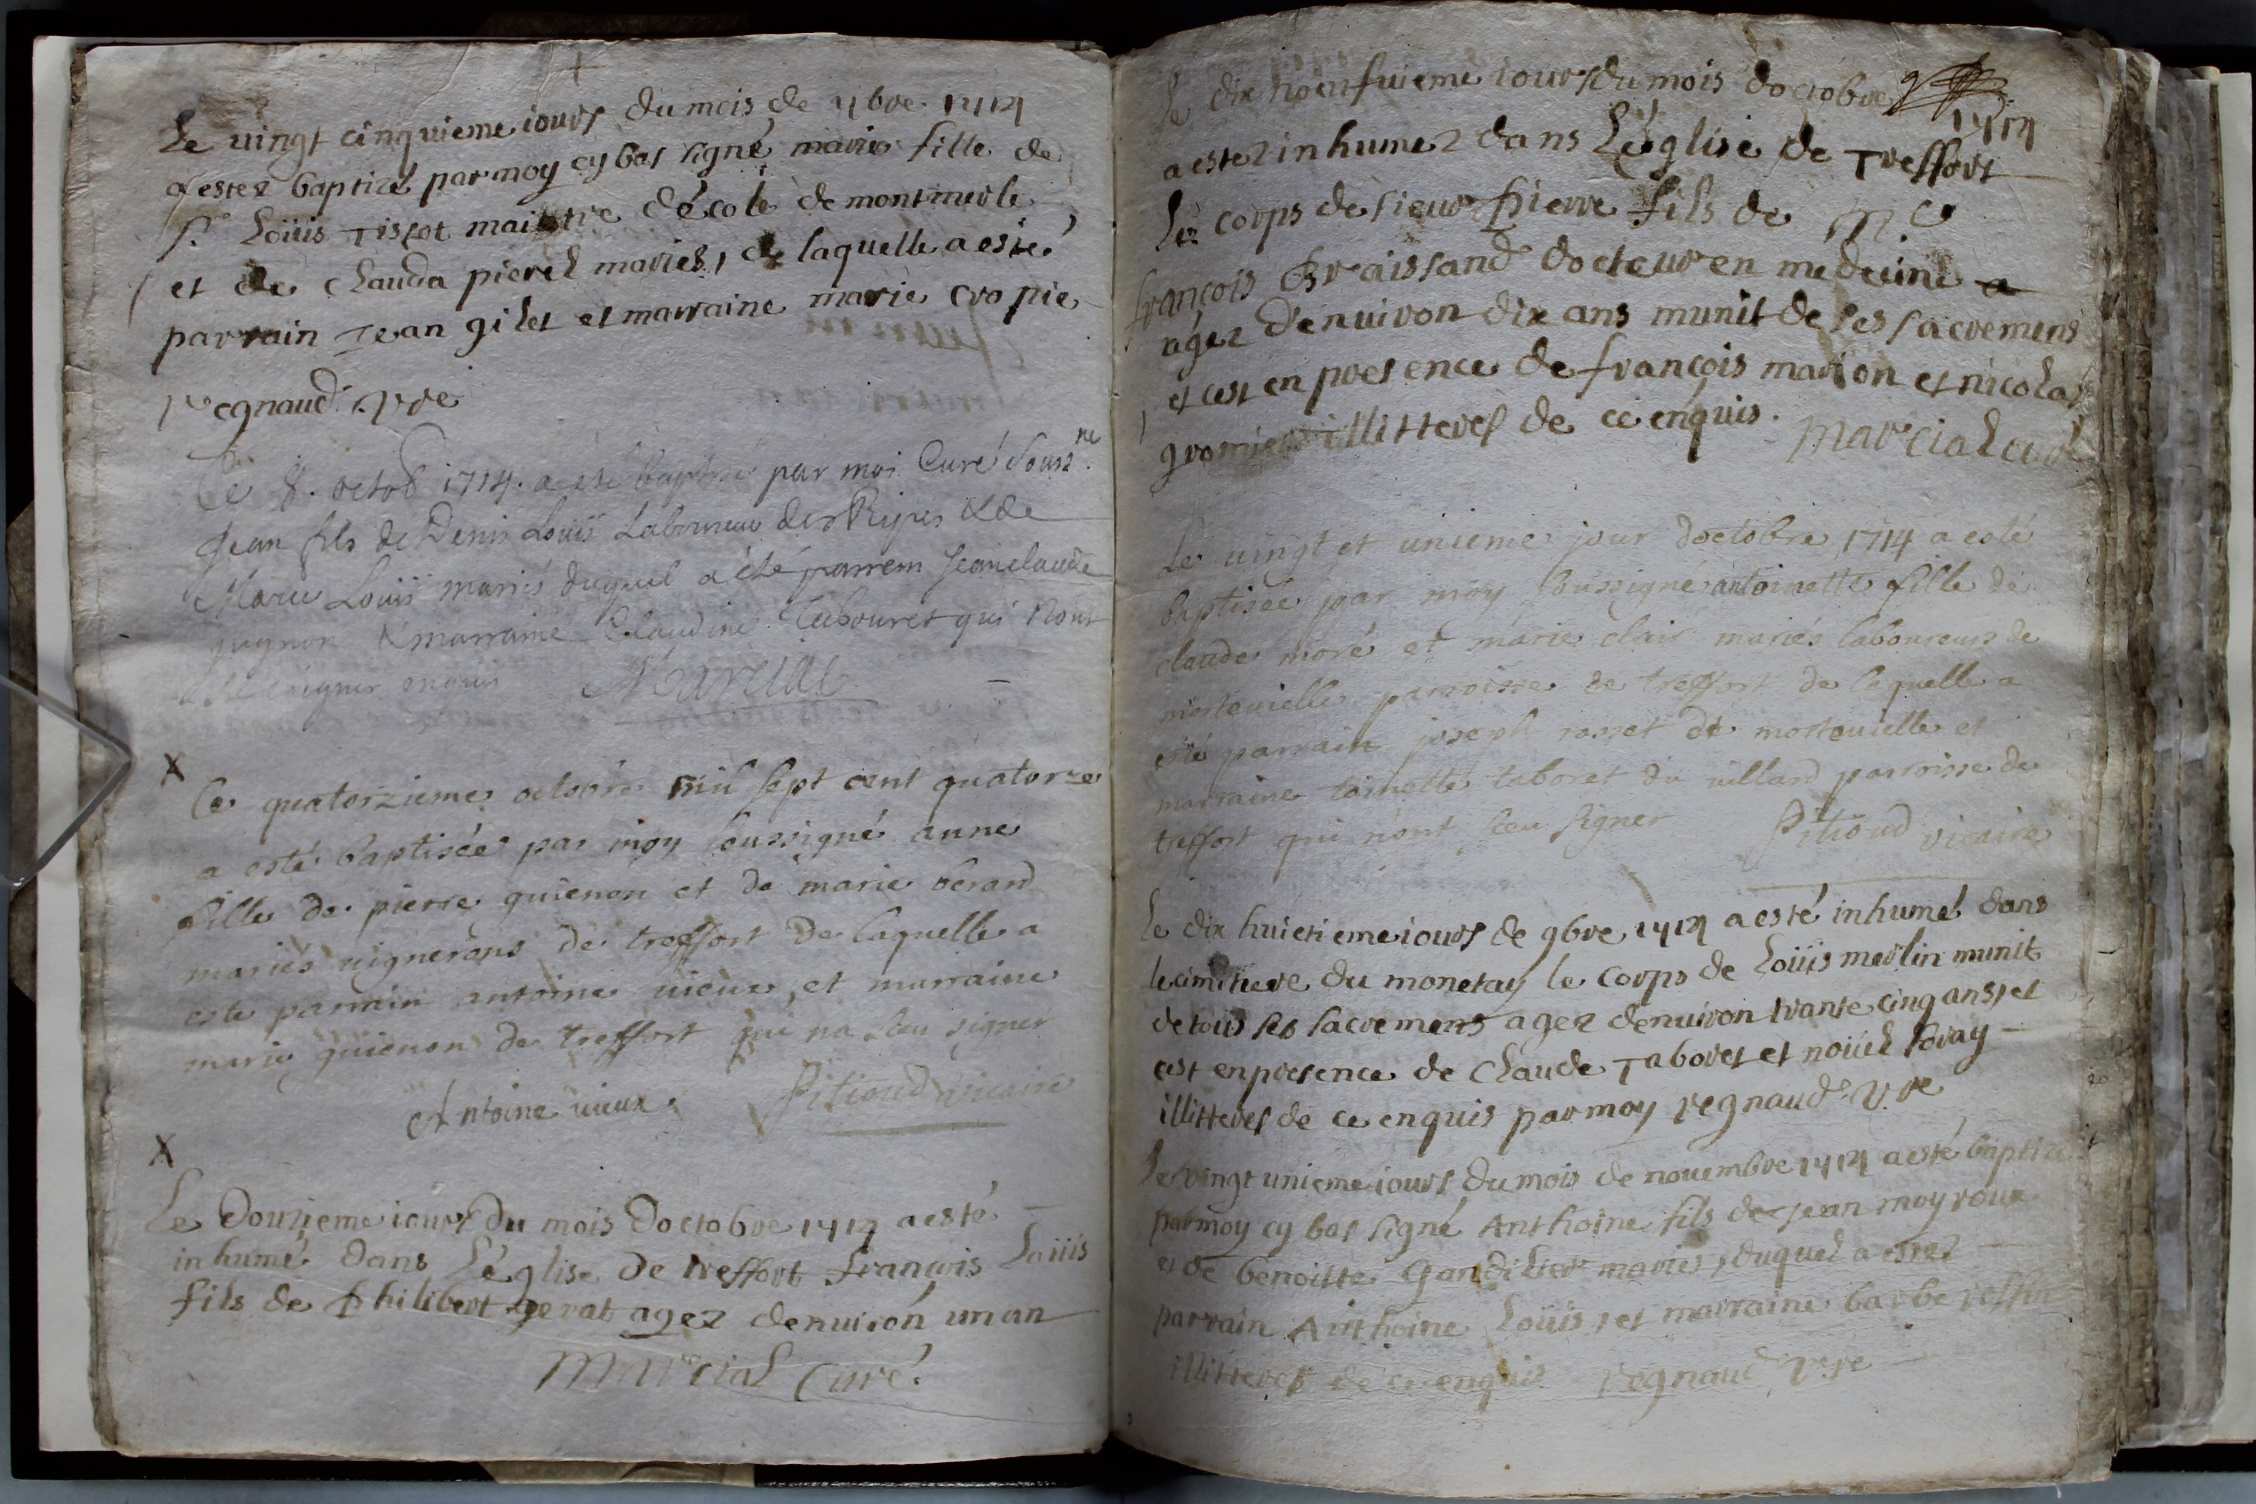 Le vingt cinquieme iours du mois de 7bre 1714
a estez baptizé par moy cy bas signé marie fille de
sr Loüis Tissot maistre d'école de montmerle
et de Clauda pierel mariés, de laquelle a esté
parrain Jean gilet et marraine marie cropie
regnaud vre
Ce 8. octob 1714. a été baptisé par moi Curé souss.né
Jean fils de Denis Louis Laboureur des Ripes & de
Marie Louis mariés duquel a été parrein Jean claude
gugnon & marraine Claudine Tabouret qui n'ont
signer enquis Marcial
Ce quatorzieme octobre mil sept cent quatorze
a esté baptisée par moy soussigné anne
fille de pierre quienon et de marie beraud
mariés vignerons de treffort de laquelle a
esté parrain antoine vieux, et marraine
marie quienon de treffort qui na sceu signer
Antoine vieux. Pitioud vicaire
Le Douzieme iours du mois d'octobre 1714 a esté
inhumé dans l'église de treffort françois Loüis
fils de philibert perat agez denuiron un an
Marcial Curé.
Le dix neufuieme iours du mois doctobre
1714
a estez inhumez dans L'église de Treffort
Le corps de sieur pierre fils de Me
françois Braissand docteur en medecine
ágez d'enuiron dix ans munit de ses sacremens
et cest en presence de françois marion et nicolas
gromier illitteres de ce enquis. Marcial curé
Le vingt et unieme jour d'octobre 1714 a esté
baptisée par moy soussigné antoinette fille de
claude moré et marie clair mariés laboureurs de
montevielle parroisse de treffort de laquelle a
esté parrain joseph rosset de montevielle et
marraine toinette taboret du villard parroisse de
treffort qui n'ont sceu signer Pitioud vicaire
Le dix huictieme iours de 9bre 1714 a esté inhumé dans
le cimitiere du monetay le corps de Loüis merlin munit
de tous ses sacremens agez denuiron trante cinq ans, et
cest en presence de Claude Taboret et noüel foray
illitteres de ce enquis par moy regnaud vre
Le vingt unieme iours du mois de nouembre 1714 a esté baptizé
par moy cy bas signé Anthoine fils de Jean moyroux
et de benoitte Gandilier mariés, duquel a estez
parrain Anthoine Loüis, et marraine barbe
illitteres de ce enquis regnaud vre